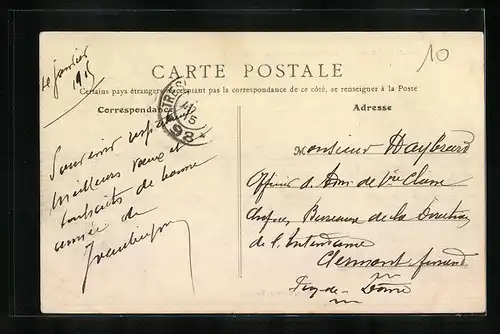 10
1e Janvier
1915
CARTE POSTALE
Certains pays étrangers n'acceptant pas la correspondance de ce côté, se renseigner à la Poste
Correspondance
Adresse
Souvenir
Meilleurs vœux et
souhaits de bonne
année de
Monsieur Haybrard
Officier d'Adm de 1ère Classe
Bureaux de la Direction
de l'Intendance
Clermont-ferrand
Puy-de-Dôme